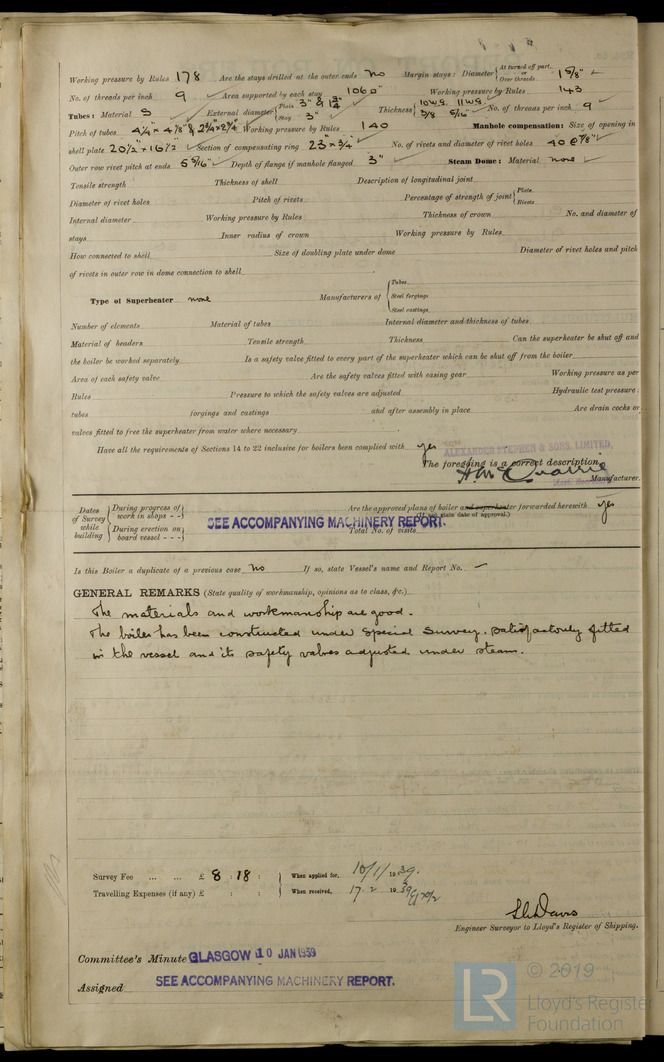 Working pressure by Rules 178 Are the stays drilled at the outer ends No Margin stays: Diameter { At turned off part, or Over threads 1 5/8"
No. of threads per inch 9 Area supported by each stay 106 □" Working pressure by Rules 143
Tubes: Material S External diameter { Plain 3" & 1 3/4" Stay 3" Thickness { 10 W.G. 11 W.G. 3/8 5/16" No. of threads per inch 9
Pitch of tubes 4 1/4" x 4 1/8" & 2 3/4" x 2 3/4" Working pressure by Rules 140 Manhole compensation: Size of opening in
shell plate 20 1/2" x 16 1/2" Section of compensating ring 23" x 3/4" No. of rivets and diameter of rivet holes 40 @ 7/8"
Outer row rivet pitch at ends 5 5/16" Depth of flange if manhole flanged 3" Steam Dome: Material none
Tensile strength Thickness of shell Description of longitudinal joint
Diameter of rivet holes Pitch of rivets Percentage of strength of joint { Plate Rivets
Internal diameter Working pressure by Rules Thickness of crown No. and diameter of
stays Inner radius of crown Working pressure by Rules
How connected to shell Size of doubling plate under dome Diameter of rivet holes and pitch
of rivets in outer row in dome connection to shell
Type of Superheater none Manufacturers of { Tubes Steel forgings Steel castings
Number of elements Material of tubes Internal diameter and thickness of tubes
Material of headers Tensile strength Thickness Can the superheater be shut off and
the boiler be worked separately Is a safety valve fitted to every part of the superheater which can be shut off from the boiler
Area of each safety valve Are the safety valves fitted with easing gear Working pressure as per
Rules Pressure to which the safety valves are adjusted Hydraulic test pressure:
tubes forgings and castings and after assembly in place Are drain cocks or
valves fitted to free the superheater from water where necessary
Have all the requirements of Sections 14 to 22 inclusive for boilers been complied with yes
ALEXANDER STEPHEN & SONS, LIMITED,
The foregoing is a correct description,
Manufacturer.
Dates of Survey while building { During progress of work in shops - - } { During erection on board vessel - - - } SEE ACCOMPANYING MACHINERY REPORT. Are the approved plans of boiler and superheater forwarded herewith yes
(If not state date of approval.)
Total No. of visits
Is this Boiler a duplicate of a previous case No If so, state Vessel's name and Report No. —
GENERAL REMARKS (State quality of workmanship, opinions as to class, &c.)
The materials and workmanship are good.
The boiler has been constructed under Special Survey, satisfactorily fitted
in the vessel and its safety valves adjusted under steam.
Survey Fee ... ... £ 8 : 18 : { When applied for, 10/1/1939.
Travelling Expenses (if any) £ : : { When received, 17.2 1939
Engineer Surveyor to Lloyd's Register of Shipping.
Committee's Minute GLASGOW 10 JAN 1939
Assigned SEE ACCOMPANYING MACHINERY REPORT.
LR © 2019
Lloyd's Register
Foundation